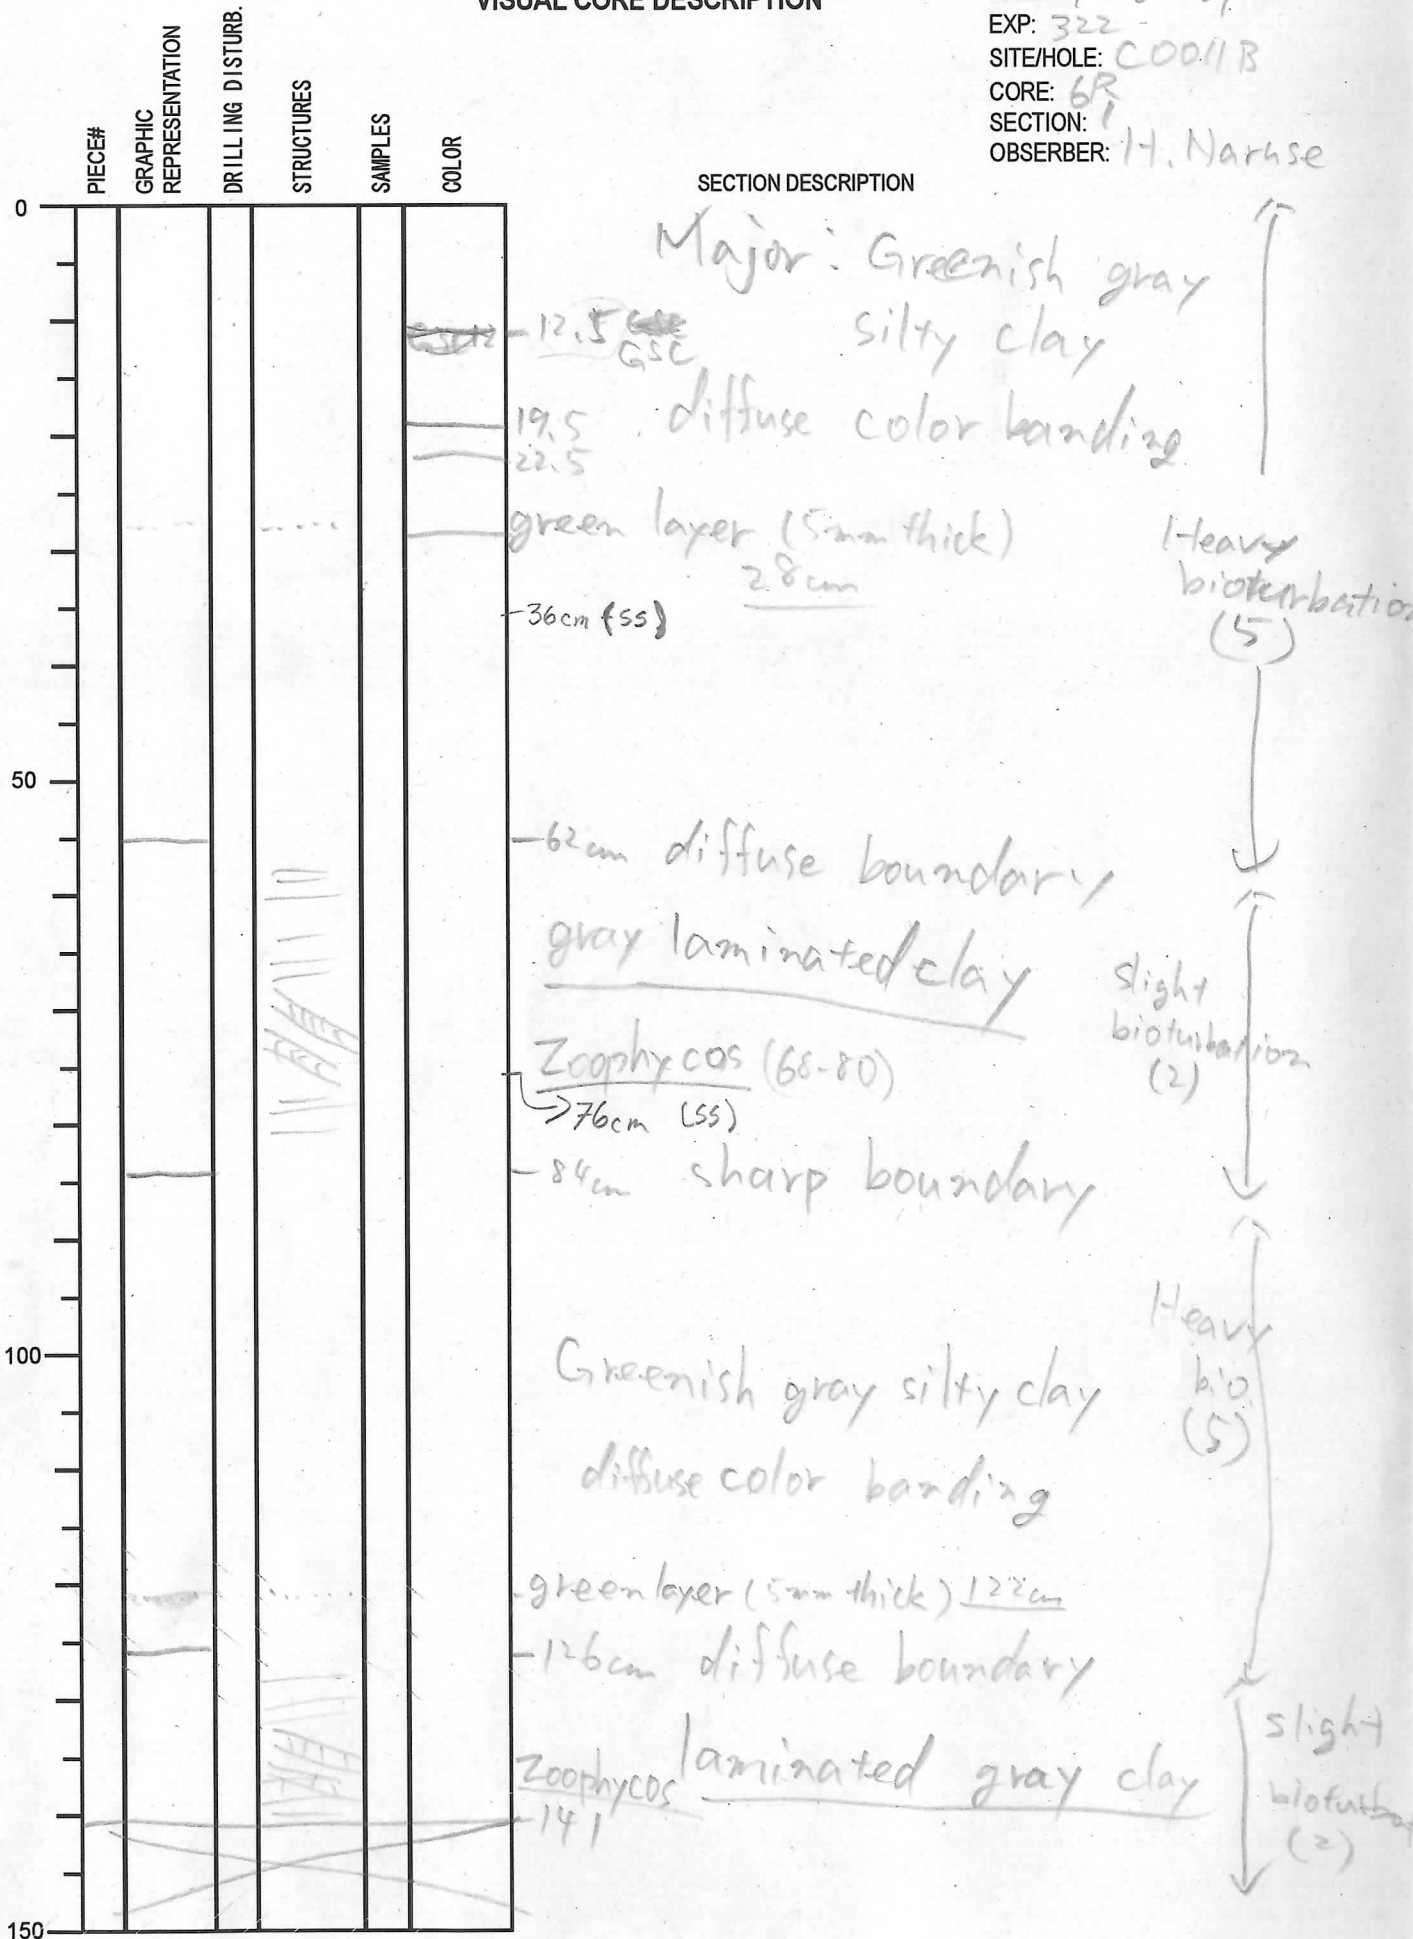 VISUAL CORE DESCRIPTION
EXP: 322
SITE/HOLE: C0011B
CORE: 6R
SECTION: 1
OBSERBER: H. Naruse
PIECE#
GRAPHIC
REPRESENTATION
DRILLING DISTURB.
STRUCTURES
SAMPLES
COLOR
SECTION DESCRIPTION
0
Major: Greenish gray
silty clay
12.5
GSC
19.5 diffuse color banding
22.5
green layer (5mm thick)
28cm
Heavy
bioturbation
(5)
36cm (SS)
50
62cm diffuse boundary
gray laminated clay
slight
bioturbation
(2)
Zoophycos (68-80)
76cm (SS)
84cm sharp boundary
100
Greenish gray silty clay
diffuse color banding
Heavy
bio.
(5)
green layer (5mm thick) 122cm
126cm diffuse boundary
Zoophycos laminated gray clay
slight
bioturba
(2)
141
150